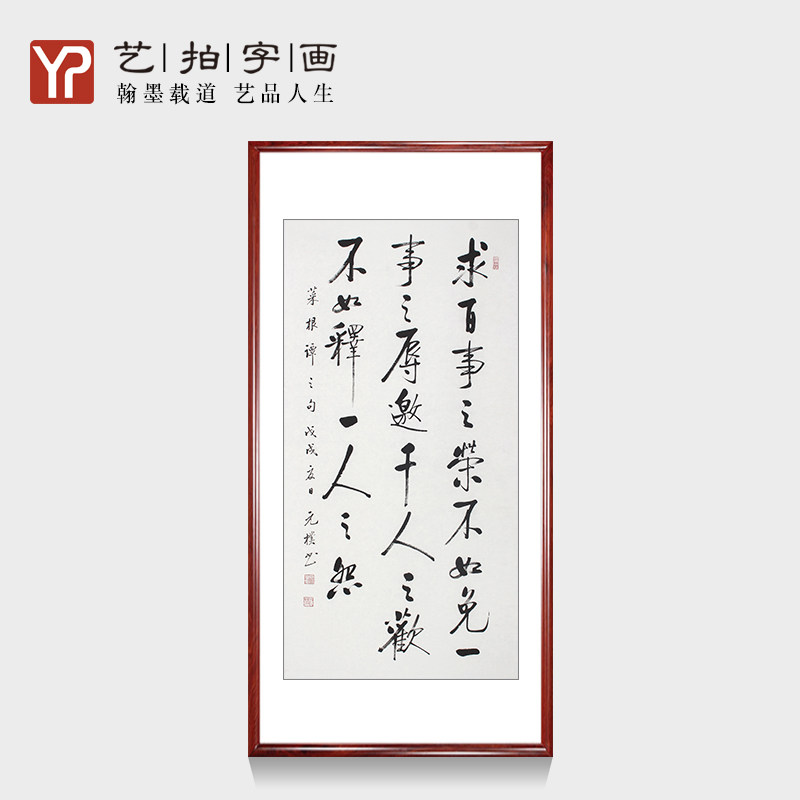 YP
艺拍字画
翰墨载道 艺品人生
求百事之榮不如免一
事之辱邀千人之歡
不如釋一人之怨
菜根谭之句戊戌夏日元樸书